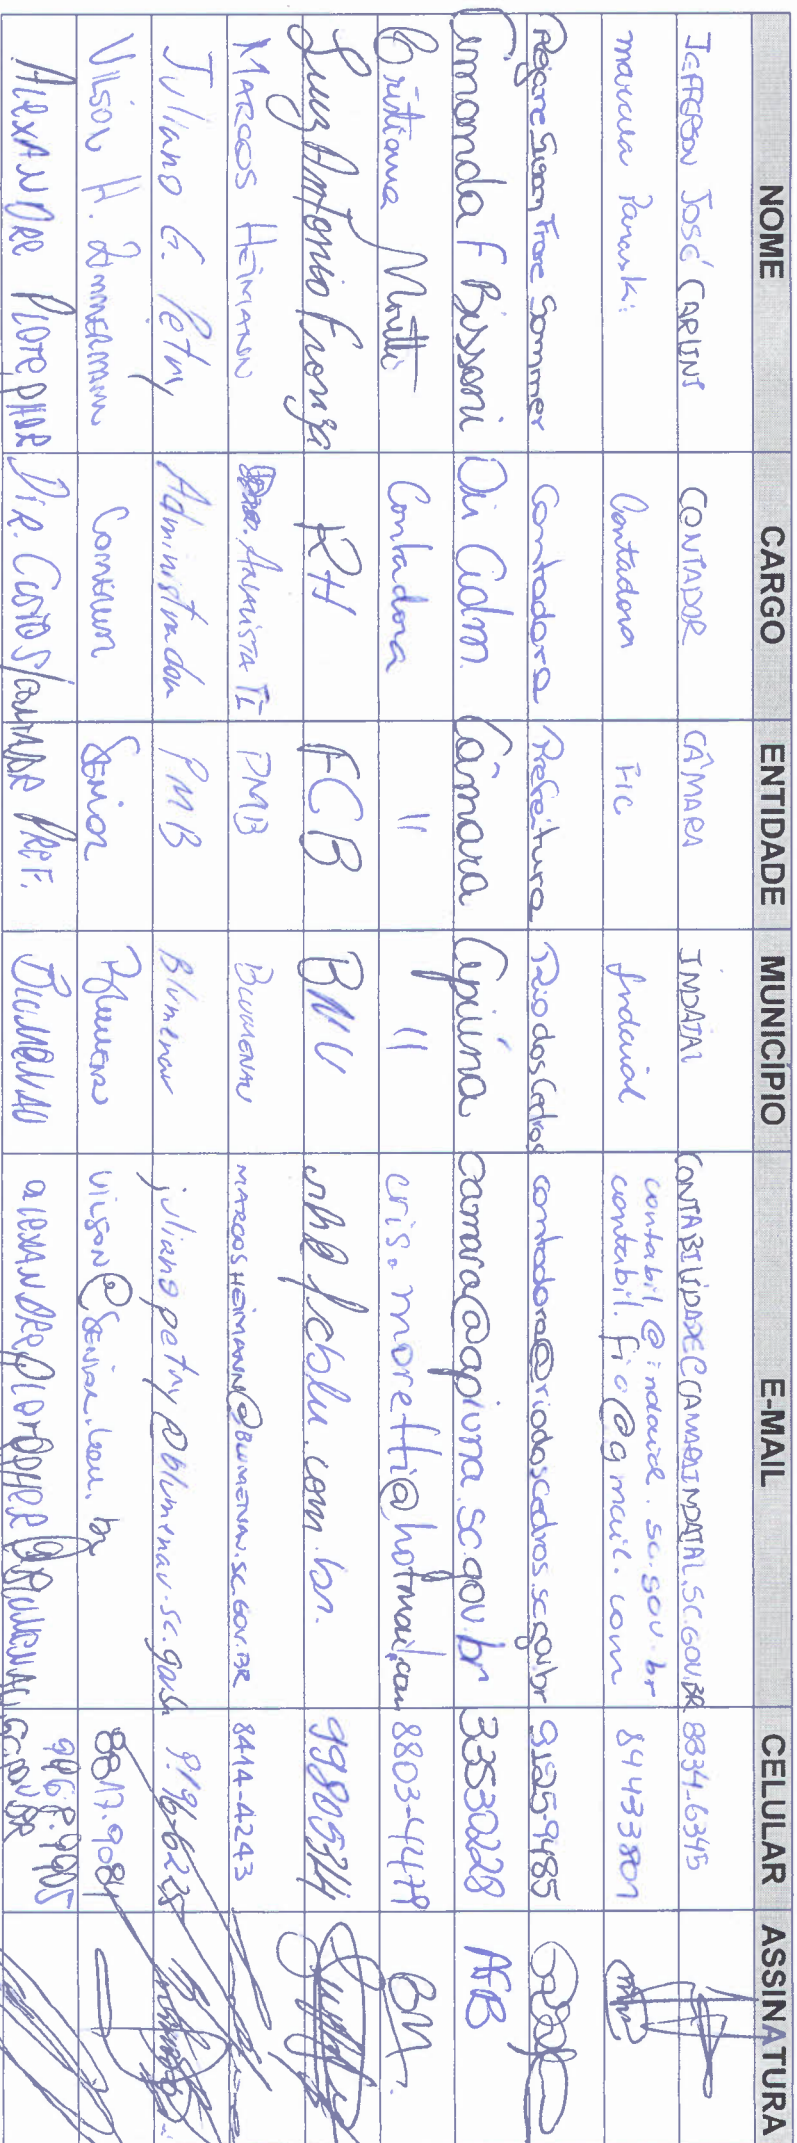 NOME CARGO ENTIDADE MUNICÍPIO E-MAIL CELULAR ASSINATURA
JEFFERSON JOSÉ CARLINI CONTADOR CÂMARA INDAIAL CONTABILIDADE@CAMARAINDAIAL.SC.GOV.BR 8834-6345
contabil@indaial.sc.gov.br
Contadora FIC Indaial contabil.fic@gmail.com 84433801
Rejane Frare Sommer Contadora Prefeitura Rio dos Cedros contadora@riodoscedros.sc.gov.br 91259485
Amanda F Bissoni Dir Adm. Câmara Apiúna camara@apiuna.sc.gov.br 33530228 AFB
Cristiana Moretti Contadora 11 11 cris.moretti@hotmail.com 8803-4479 CM.
Luiz Antonio Fronza RH FCB BNU rh@fcblu.com.br. 99805714
MARCOS HEIMANN ANALISTA TI PMB BLUMENAU MARCOSHEIMANN@BLUMENAU.SC.GOV.BR 8414-4243
Juliano G. Petry Administrador PMB Blumenau julianopetry@blumenau.sc.gov.br
VILSON H. ZIMMERMANN Senior Blumenau VILSON@SENIOR.com.br 8817.9084
ALEXANDRE DIR. CUSTOS/CONTADOR PREF. BLUMENAU